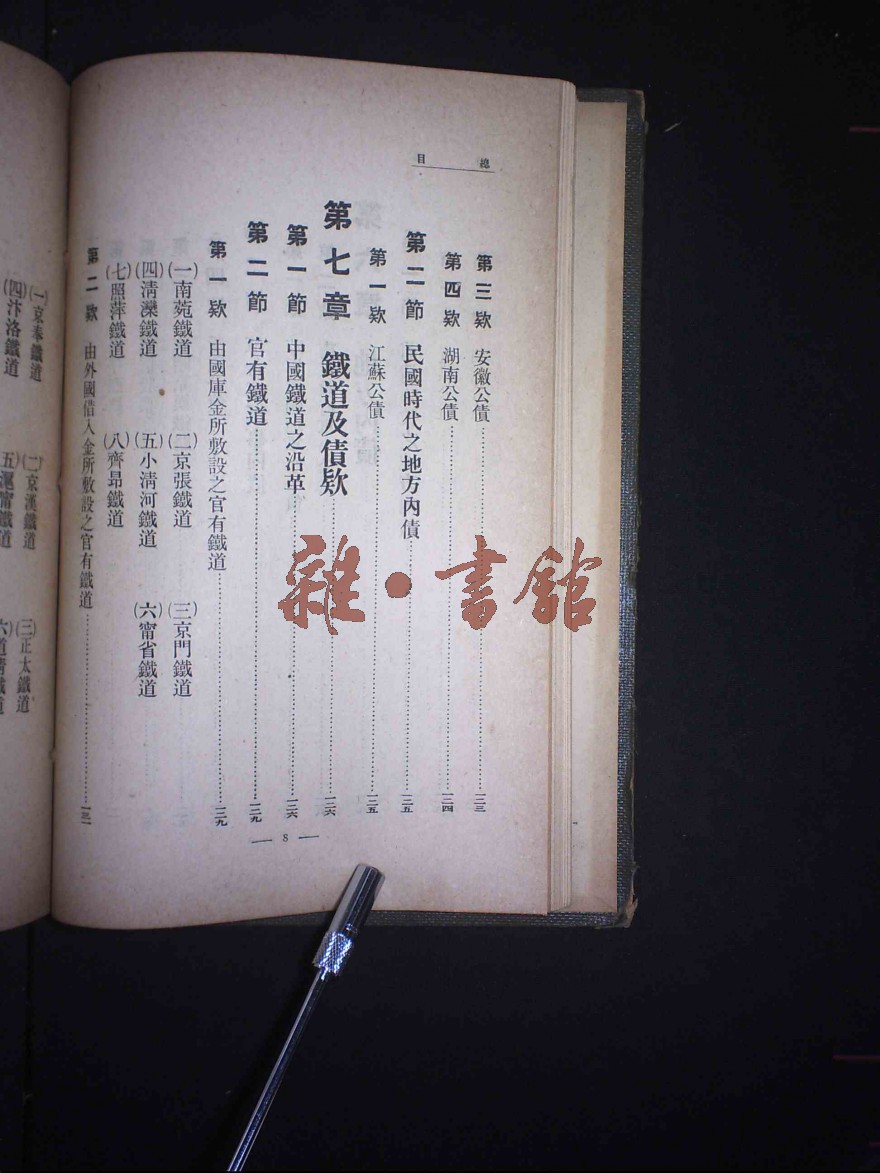 總目
第三欵 安徽公債 一二三
第四欵 湖南公債 一二四
第二節 民國時代之地方內債 一二五
第一欵 江蘇公債 一二五
第七章 鐵道及債欵 一二六
第一節 中國鐵道之沿革 一二六
第二節 官有鐵道 一二九
第一欵 由國庫金所敷設之官有鐵道 一二九
(一)南苑鐵道 (二)京張鐵道 (三)京門鐵道
(四)淸灤鐵道 (五)小淸河鐵道 (六)甯省鐵道
(七)照萍鐵道 (八)齊昂鐵道
第二欵 由外國借入金所敷設之官有鐵道 一三一
— 8 —
(一)京奉鐵道 (二)京漢鐵道 (三)正太鐵道
(四)汴洛鐵道 (五)滬甯鐵道 (六)道淸鐵道
雜·書館